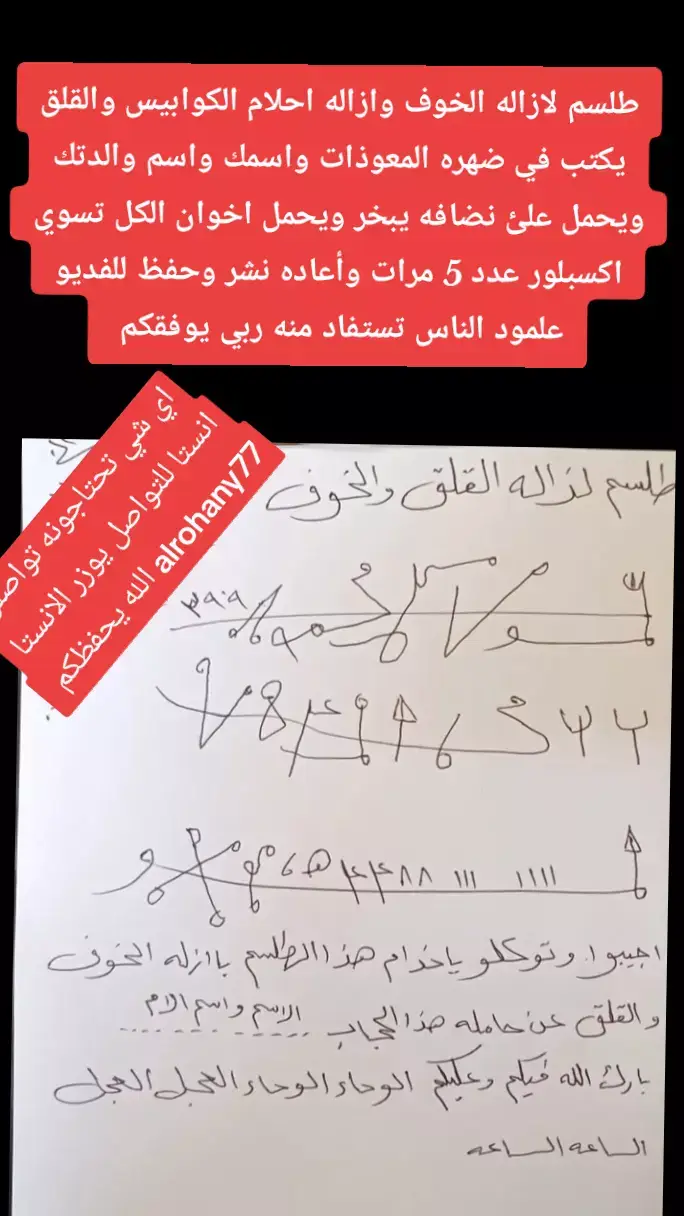 طلسم لازاله الخوف وازاله احلام الكوابيس والقلق
يكتب في ضهره المعوذات واسمك واسم والدتك
ويحمل علئ نضافه يبخر ويحمل اخوان الكل تسوي
اكسبلور عدد 5 مرات وأعاده نشر وحفظ للفديو
علمود الناس تستفاد منه ربي يوفقكم
اي شي تحتاجونه تواصل
انستا للتواصل يوزر الانستا
alrohany77 الله يحفظكم
طلسم لزاله القلق والخوف
اجيبوا وتوكلو ياخدام هذا الطلسم باازله الخوف
والقلق عن حامله هذا الحجاب الاسم واسم الام
بارك الله فيكم وعليكم الوحاء الوحاء العجل العجل
الساعه الساعه